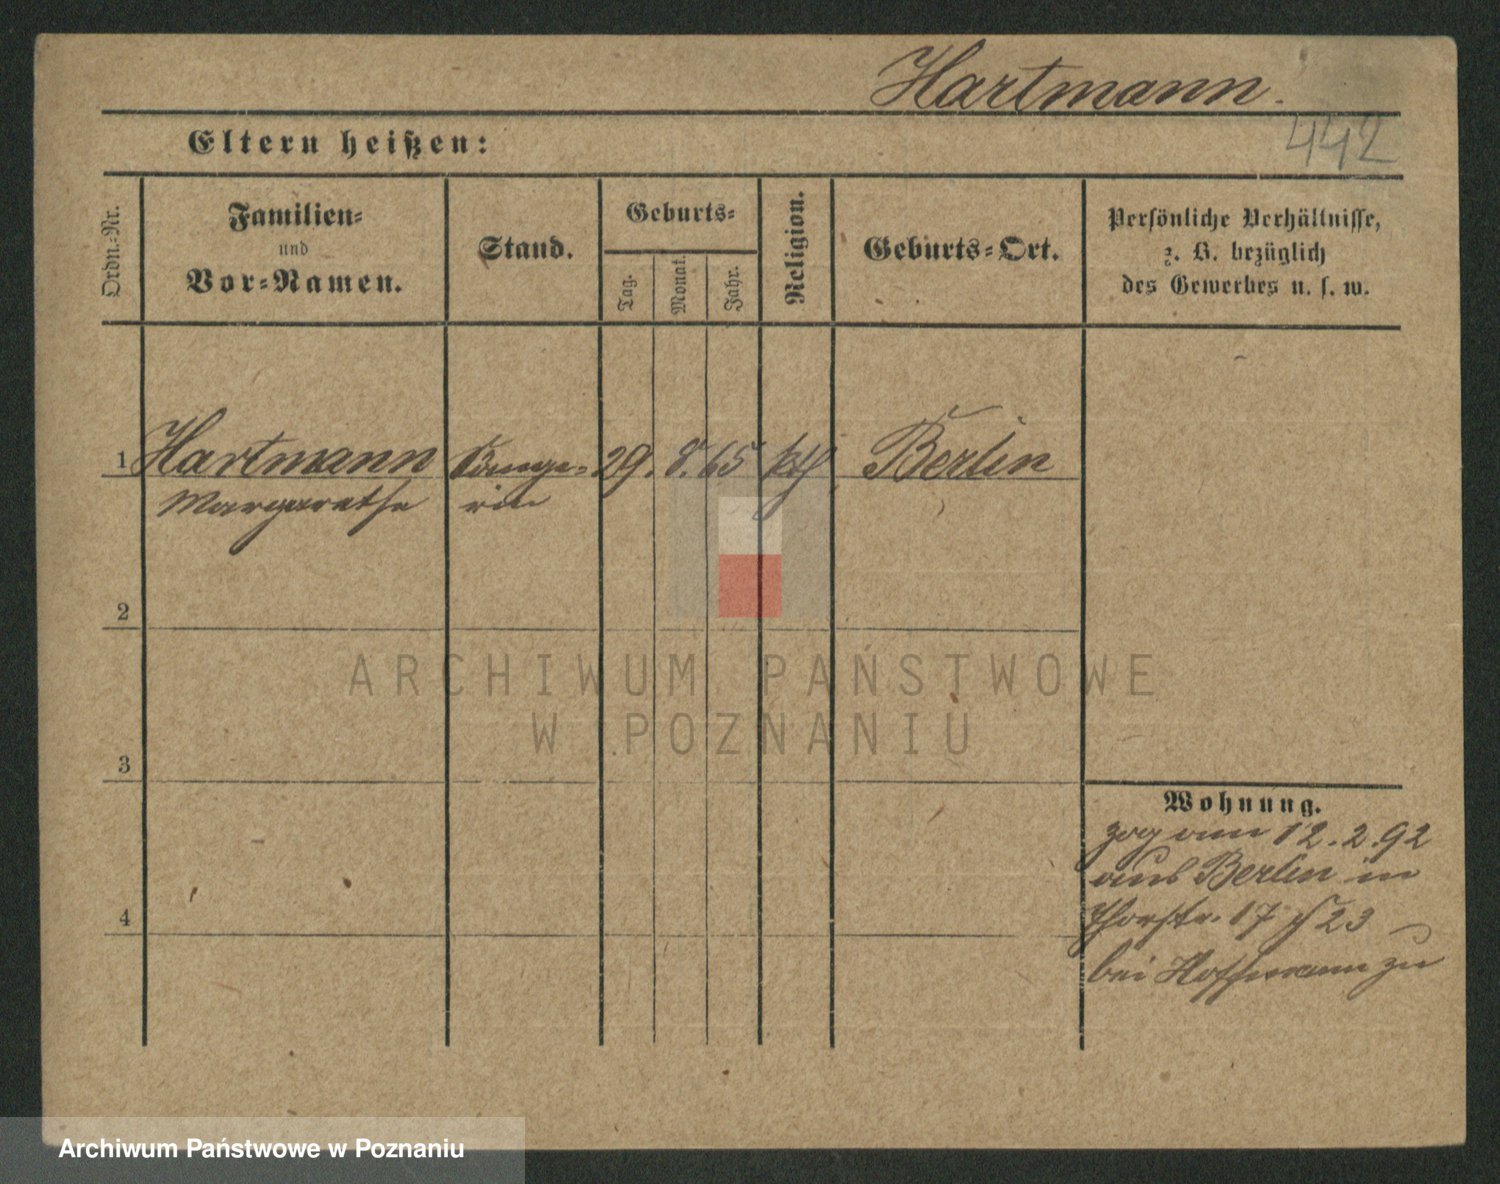 Hartmann.
442
Eltern heißen:
Ordn.-Nr.
Familien-
und
Vor-Namen.
Stand.
Geburts-
Tag.
Monat.
Jahr.
Religion.
Geburts-Ort.
Persönliche Verhältnisse,
z. B. bezüglich
des Gewerbes u. s. w.
1 Hartmann Sänge- 29. 8. 65 kth Berlin
Margarethe rin
2
3
4
Wohnung.
zog am 12.2.92
aus Berlin in
Thorstr. 17 23
bei Hoffmann zu
ARCHIWUM PAŃSTWOWE
W POZNANIU
Archiwum Państwowe w Poznaniu